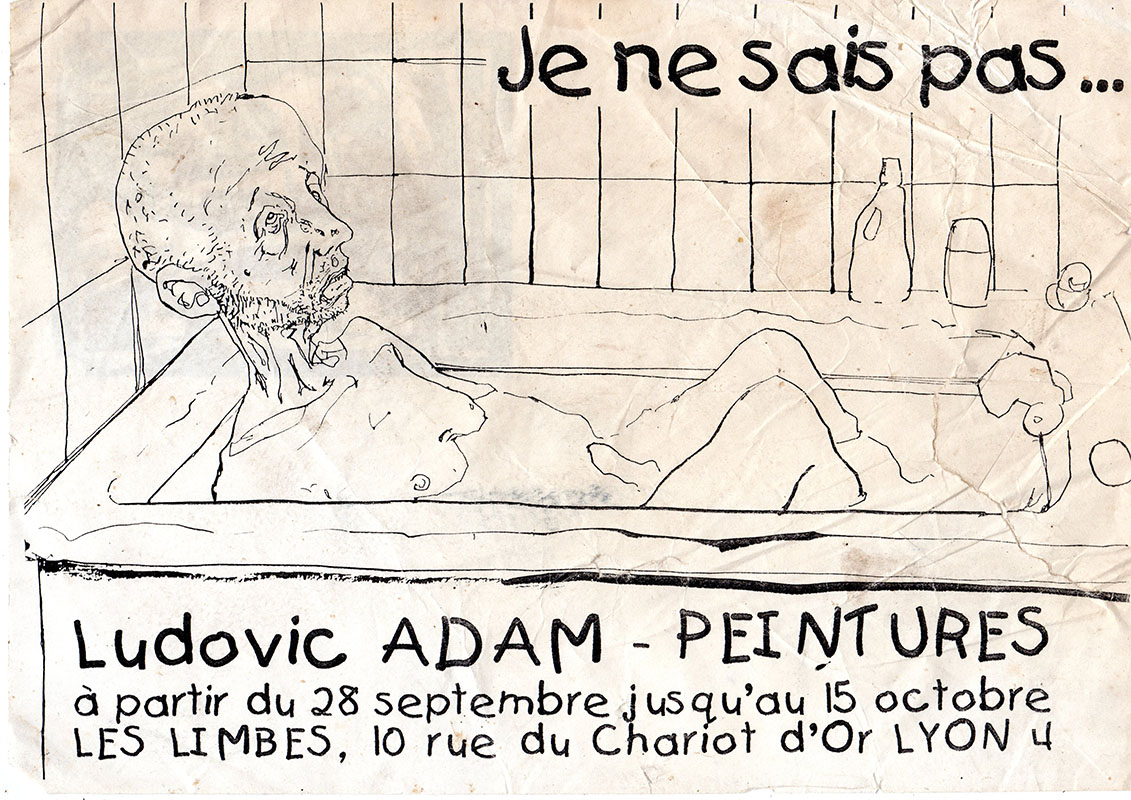 Je ne sais pas...
Ludovic ADAM - PEINTURES
à partir du 28 septembre jusqu'au 15 octobre
LES LIMBES, 10 rue du Chariot d'Or LYON 4